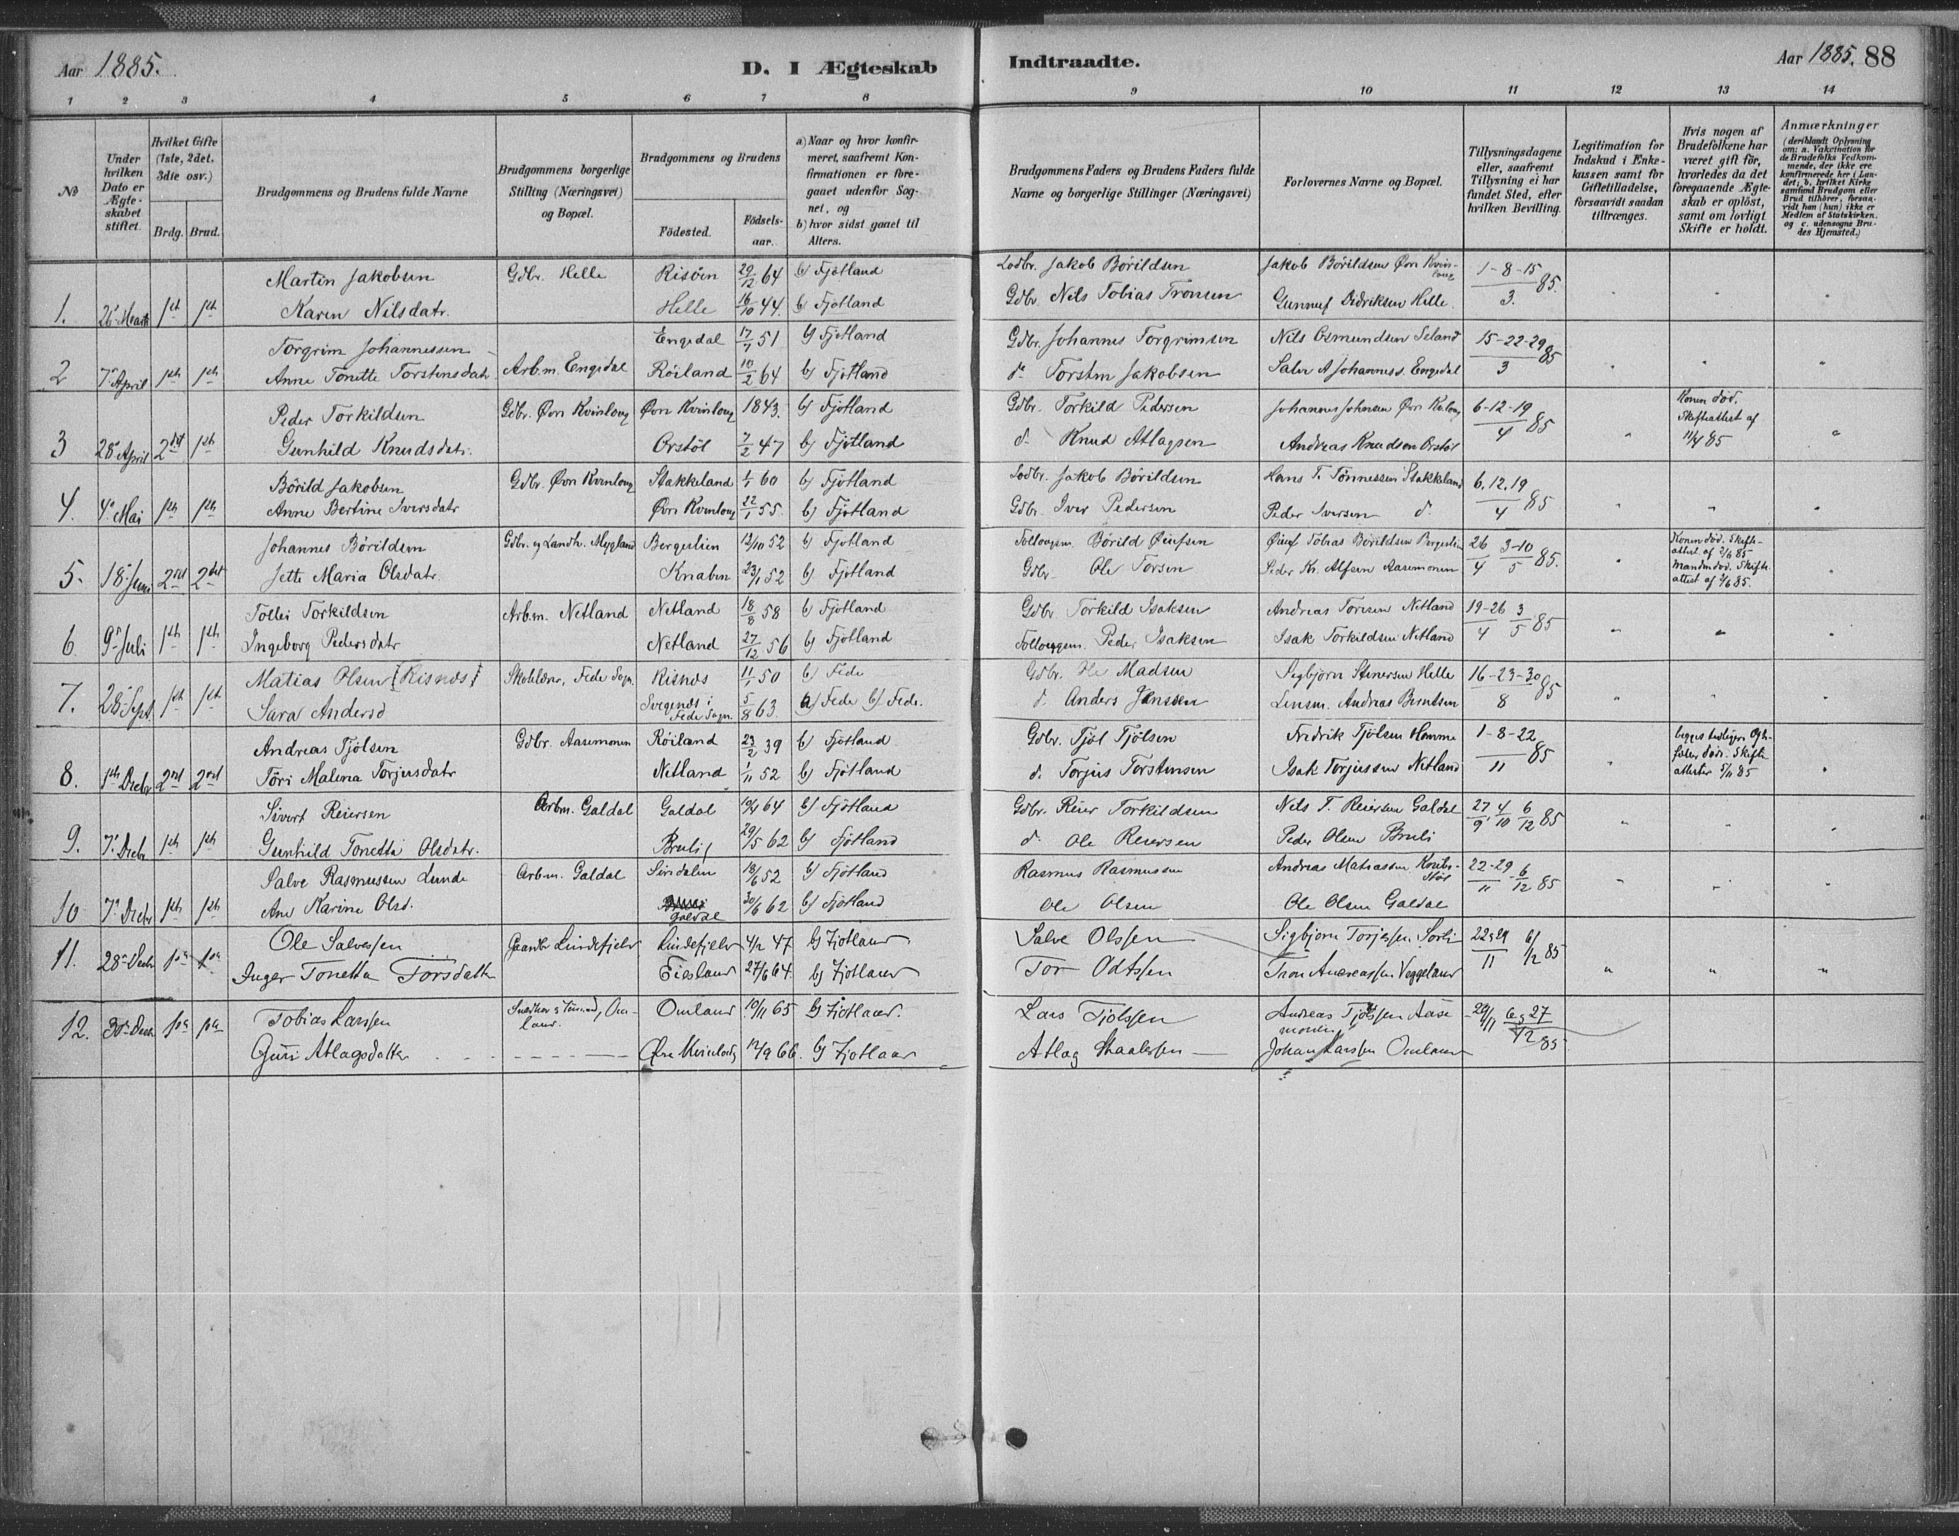 Aar 1885.
D. I Ægteskab Indtraadte.
Aar 1885. 88
1 2 3 4 5 6 7 8 9 10 11 12 13 14
No
Under hvilken Dato er Ægteskabet stiftet.
Hvilket Gifte (1ste, 2det, 3die osv.)
Brdg. Brud.
Brudgommens og Brudens fulde Navne
Brudgommens borgerlige Stilling (Næringsvei) og Bopæl.
Brudgommens og Brudens
Fødested. Fødselsaar.
a) Naar og hvor konfirmeret, saafremt Konfirmationen er foregaaet udenfor Sognet, og
b) hvor sidst gaaet til Alters.
Brudgommens Faders og Brudens Faders fulde Navne og borgerlige Stillinger (Næringsvei)
Forlovernes Navne og Bopæl.
Tillysningsdagene eller, saafremt Tillysning ei har fundet Sted, efter hvilken Bevilling.
Legitimation for Indskud i Enkekassen samt for Giftetilladelse, forsaavidt saadan tiltrænges.
Hvis nogen af Brudefolkene har været gift før, hvorledes da det foregaaende Ægteskab er opløst, samt om lovligt Skifte er holdt.
Anmærkninger (deriblandt Oplysning om: a. Vaccination for de Brudefolks Vedkommende, der ikke ere konfirmerede her i Landet; b. hvilket Kirkesamfund Brudgom eller Brud tilhører, forsaavidt han (hun) ikke er Medlem af Statskirken, og c. udensogns Brudes Hjemsted.)
1. 26 Marts 1ste 1ste Martin Jakobsen Gdbr. Helle Risöen 29/12 64 b) Fjotland Lodbr. Jakob Börildsen Jakob Börildsen Øvr. Kvinlaug 1-8-15/3. 85.
Karen Nilsdatr. Helle 16/10 44. b) Fjotland Gdbr. Nils Tobias Tronsen Gunnuf Didriksen Helle.
2 7 April 1ste 1ste Torgrim Johannessen Arb.m. Engedal Engedal 17/7 51 b) Fjotland Gdbr. Johannes Torgrimsen Nils Osmundsen Seland 15-22-29/3 85
Anne Tonette Torstensdatr Röiland 10/2 64 b) Fjotland d. Torsten Jakobsen Salve A Johanness. Engedal
3 28 April 2det 1ste Peder Torkildsen Gdbr. Øvr Kvinlaug Øvr Kvinlaug 1843. b) Fjotland Gdbr. Torkild Pedersen Johannes Johnsen Øvr 6-12-19/4 85 Konen död. Skifteattest af 11/4 85
Gunhild Knudsdatr. Orstöl 7/2 47 b) Fjotland d. Knud Atlagsen Andreas Knudsen Orstöl
4. 4 Mai 1ste 1ste Börild Jakobsen Gdbr. Øvr Kvinlaug Stakkeland 1/1 60 b) Fjotland Lodbr. Jakob Börildsen Hans T. Tönnessen Stakkeland 6.12.19/4 85
Anne Bertine Iversdatr Øvr Kvinlaug 22/1 55 b) Fjotland Gdbr. Iver Pedersen Peder Iversen d.
5. 18 Juni 2det 2det Johannes Börildsen Gdbr. og Landh. Mygland Bergelien 12/10 52 b) Fjotland Börild 26/4 3-10/5 85. Konen död. Skifteattest af 85
Jette Maria Olsdatr. Knaben 23/1 52 b) Fjotland Gdbr. Ole Torsen Peder Kr. Alfsen Aasemonen Manden död. Skifteattest af 85.
6 9 Juli 1ste 1ste Tollei Torkildsen Arb.m. Netland Netland 18/8 58 b) Fjotland Gdbr Torkild Isaksen Andreas Toresen Netland 19-26/4 3/5 85
Ingeborg Pedersdatr Netland 27/12 56 b) Fjotland Peder Isaksen Isak Torkildsen Netland
7. 28 Sept. 1ste 1ste Matias Olsen (Risnes) Skolelærer, Fede Sogn. Risnes 11/1 50 b) Fede Gdbr. Ole Madsen Sigbjörn Stenersen Helle 16-23-30/8 85
Sara Andersd Svegenes i Fede Sogn. 5/8 63. a) Fede b) Fede. d. Anders Jenssen Lensm. Andreas Berntsen
8. 1ste Decbr 2det 2det Andreas Tjölsen Gdbr. Aasemonen Röiland 23/2 39 b) Fjotland Gdbr. Tjöl Tjölsen Fredrik Tjölsen Homme 1-8-22/11 85 Skifteattester 5/11 85
Töri Malena Torjusdatr Netland 1/11 52 b) Fjotland d. Torjus Torstensen Isak Torjussen Netland
9. 7 Decbr 1ste 1ste Sivert Reiersen Arbm. Galdal Galdal 64 b) Fjotland Gdbr. Reier Torkildsen Nils T. Reiersen Galdal 27/9, 4/10 6/12 85
Gunhild Tonetta Olsdatr. Bruli 29/5 62 b) Fjotland d. Ole Reiersen Peder Olsen Bruli
10 7 Decbr 1ste 1ste Salve Rasmussen Lunde Arbm. Galdal Sirdalen 18/6 52 b) Fjotland Rasmus Rasmussen Andreas Matiassen 22-29/11 - 6/12 85
Ane Karine Olsd. Galdal 30/6 62 b) Fjotland Ole Olsen Ole Olsen Galdal
11. 28 Decbr 1ste 1ste Ole Salvessen Gaardbr Lindefjeld Lindefjeld 4/12 47 b) Fjotland Salve Olssen Sigbjörn Torjessen Sorli 22 29/11 6/12 85
Inger Tonetta Torsdatter Eiesland 27/6 64. b) Fjotland Tor Odtssen Tron Andreassen Veggeland
12. 30 Decbr 1ste 1ste Tobias Larssen Omland. Omland 10/11 65 b) Fjotland. Lars Tjölssen Andreas Tjölssen Aasemonen 29/11 6 27/12 85
Guri Atlagsdatter Øvre Kvinlaug 12/9 66. b) Fjotland Atlag Johan Larssen Omland